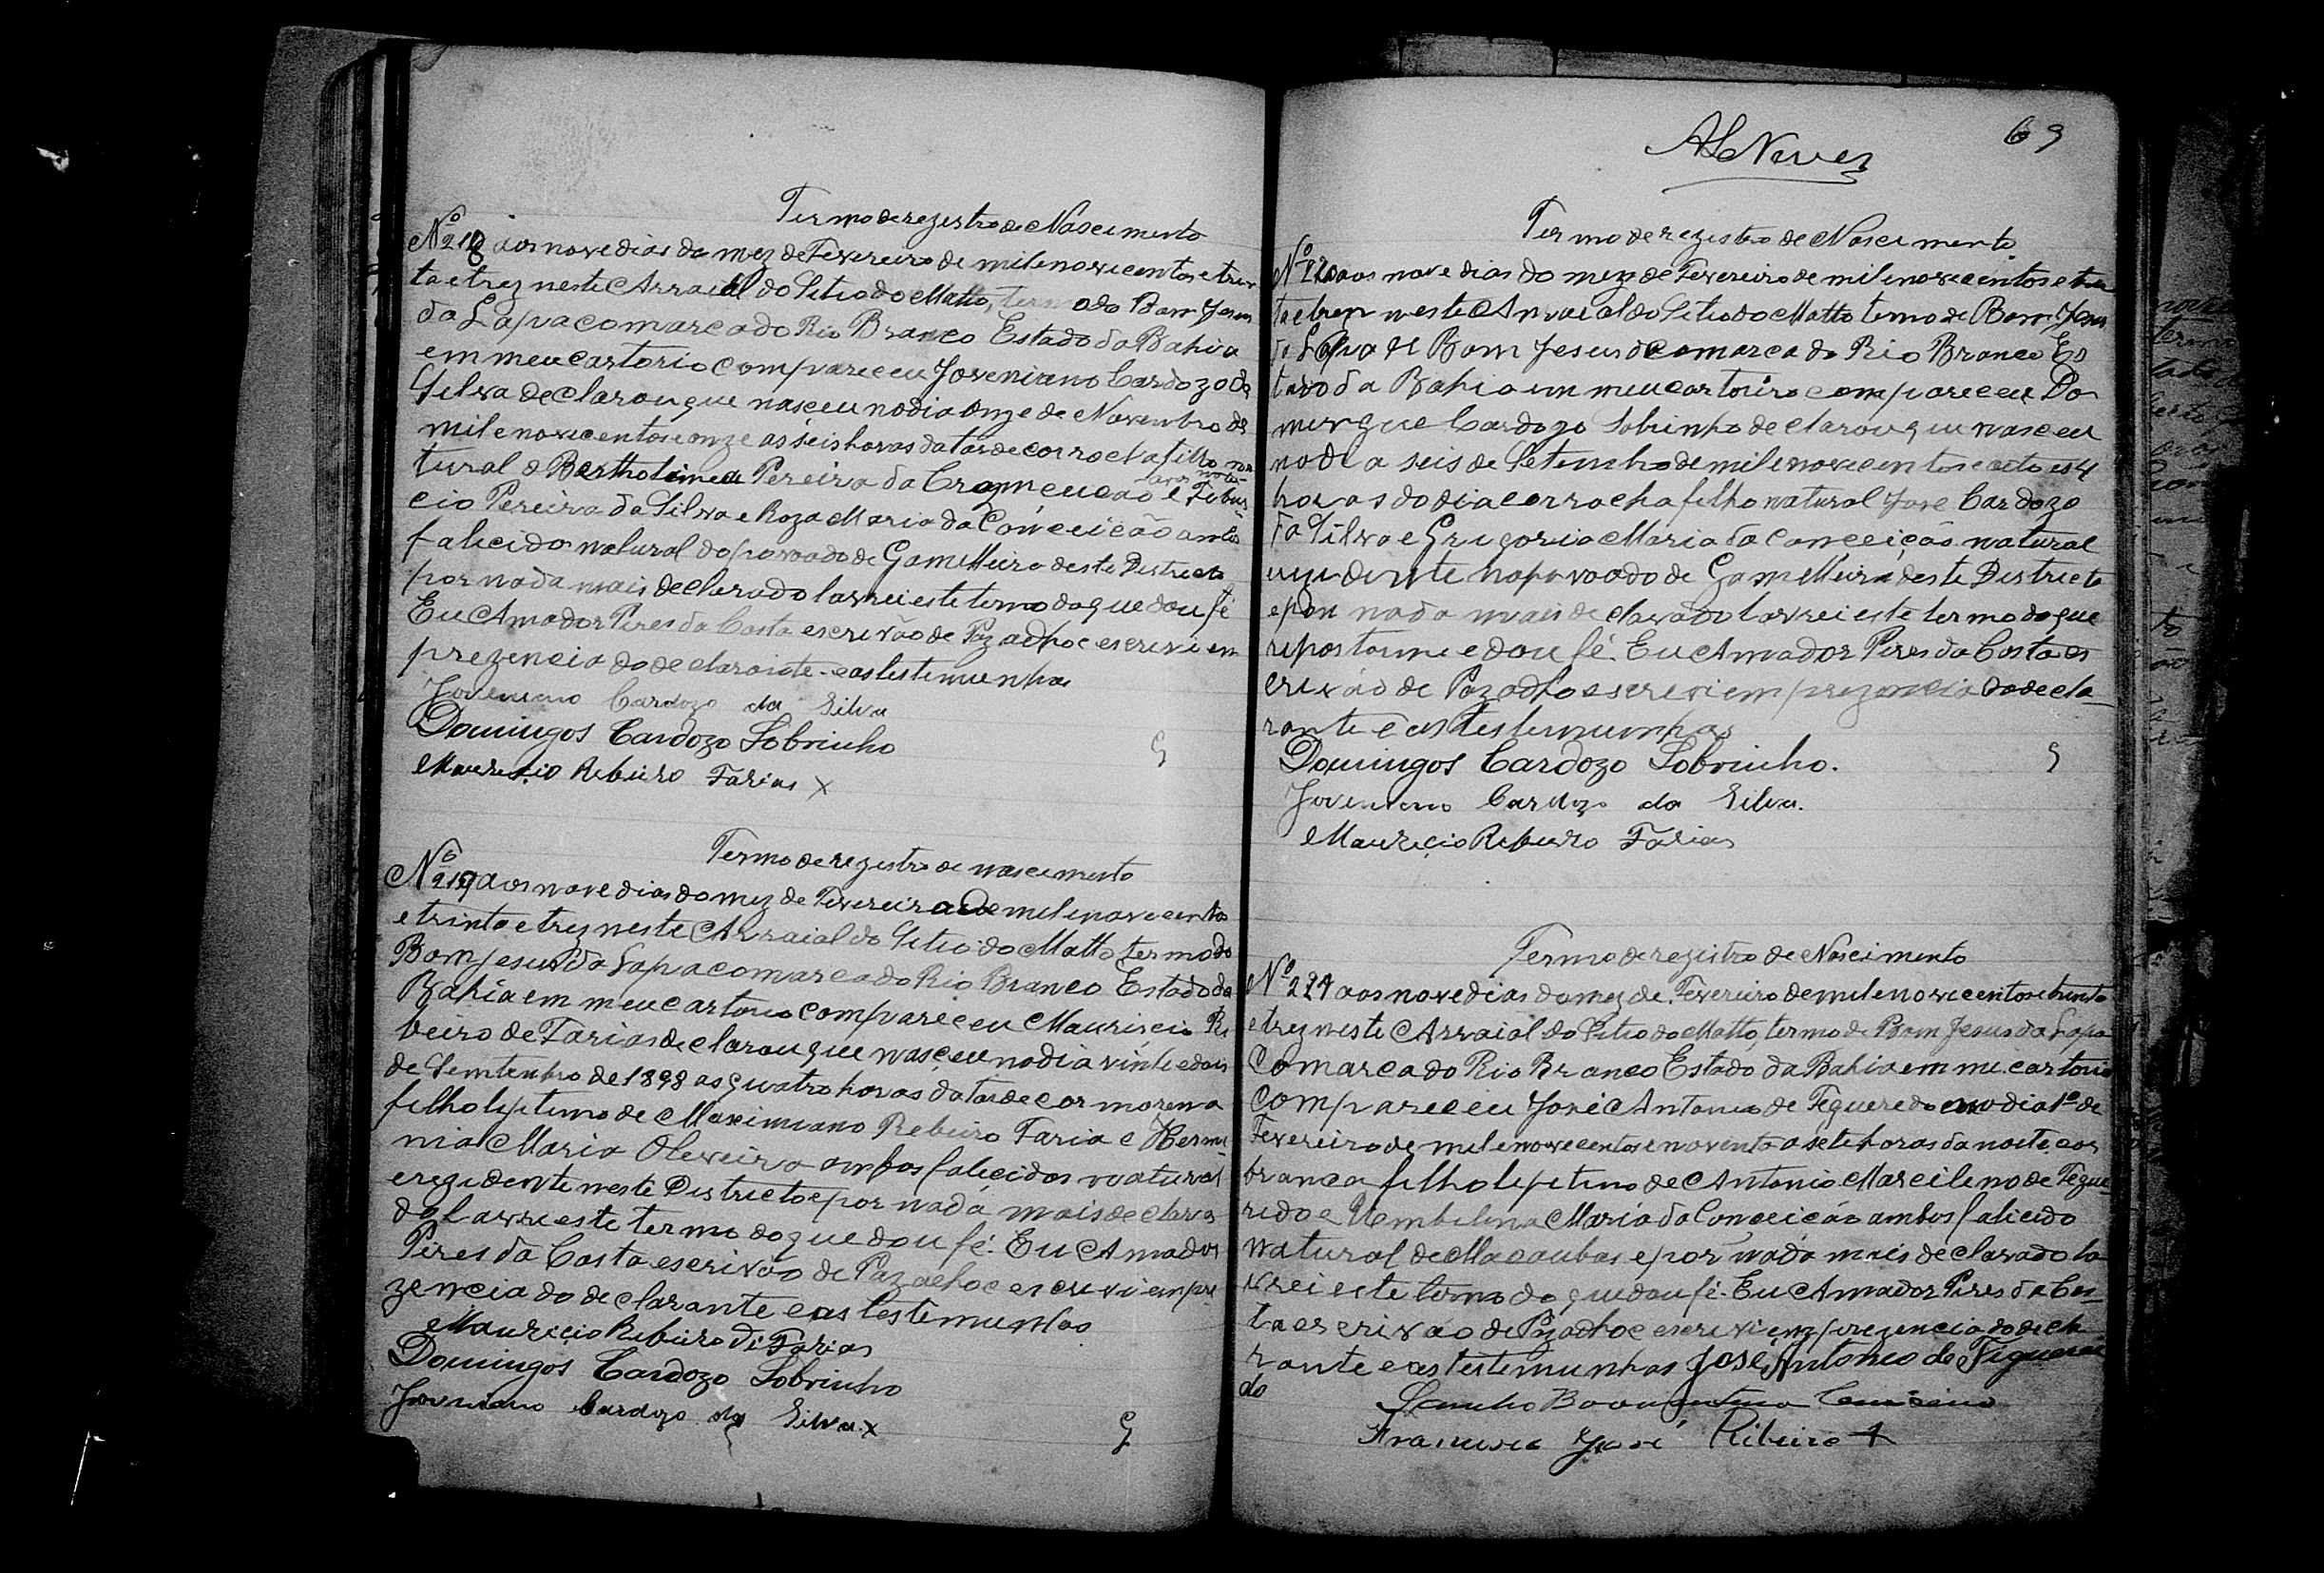 Termo de rezestro de Nascimento
Nº 218 aos nove dias do mez de Fevereiro de mil e novecentos e trin
ta e trez neste Arraial do Sitio do Matto, termo do Bom Jesus
da Lapa comarca do Rio Branco Estado da Bahia
em meu cartorio compareceu Joveniano Cardozo da
Silva declarou que nasceu no dia onze de Novembro de
mil e novecentos e onze as seis horas da tarde cor rocha filho na
tural de Bertholimeu Pereira da Conceição e Tibur
cio Pereira da Silva e Roza Maria da Conceicão ambos
falicido natural do povoado de Gamelleira deste Districto
por nada mais declarado lavrei este termo do que dou fé
Eu Amador Pires da Costa escrivão de Paz adhoc escrevi em
prezencia do declarante e as testemunhas
Joveniano Cardozo da Silva
Domingos Cardozo Sobrinho
Mauricio Ribeiro Farias x
Termo de rezestro de nascimento
Nº 219 aos nove dias do mez de Fevereiro de mil e novecentos
e trinta e trez neste Arraial do Sitio do Matto termo do
Bom Jesus da Lapa comarca do Rio Branco Estado da
Bahia em meu cartorio compareceu Mauricio Ri
beiro de Farias declarou que nasceu no dia vinte e dois
de Semtembro de 1898 as quatro horas da tarde cor morena
filho lijitimo de Maximiano Rebeiro Faria e Hermi
nia Maria Oliveira ambos falicidos natural
e rezidente neste Districto e por nada mais declara
do lavrei este termo do que dou fé. Eu Amador
Pires da Costa escrivão de Paz adhoc escrevi em pre
zencia do declarante e as testemunhas
Mauricio Ribeiro di Farias
Domingos Cardozo Sobrinho
Joveniano Cardozo da Silva x
69
ALeNeves
Termo de rezestro de Nascimento
Nº 220 aos nove dias do mez de Fevereiro de mil e novecentos e trin
ta e trez neste Arraial do Sitio do Matto termo de Bom Jesus
da Lapa de Bom Jesus da comarca do Rio Branco Es
tado da Bahia em meu cartorio compareceu Do
mingue Cardozo Sobrinho declarou que nasceu
no dia seis de Setembro de mil e novecentos e oito as 4
horas do dia cor rocha filho natural Jose Cardozo
da Silva e Grigoria Maria da Conceição natural
rezidente no povoado de Gamelleira deste Districto
e por nada mais declarado lavrei este termo do que
reportome e dou fé. Eu Amador Pires da Costa es
crivão de Paz adhoc escrevi em prezencia do decla
rante e as testemunhas
Domingos Cardozo Sobrinho.
Joveniano Cardozo da Silva.
Mauricio Ribeiro Farias
Termo de registro de Nascimento
Nº 221 aos nove dias do mez de Fevereiro de mil e novecentos e trinta
e trez neste Arraial do Sitio do Matto, termo de Bom Jesus da Lapa
Comarca do Rio Branco Estado da Bahia em meu cartorio
Compareceu José Antonio de Figueredo no dia 1º de
Fevereiro de mil e novecentos e noventa a sete horas da noite cor
branca filho lijitimo de Antonio Marcileno de Figue
redo e Umbilina Maria da Conceição ambos falicido
natural de Macaubas e por nada mais declarado la
vrei este termo do que dou fé. Eu Amador Pires da Cos
ta escrivão de Paz adhoc escrevi em prezencia do decla
rante e as testemunhas José Antonio de Figueire
do
Francisco José Ribeiro